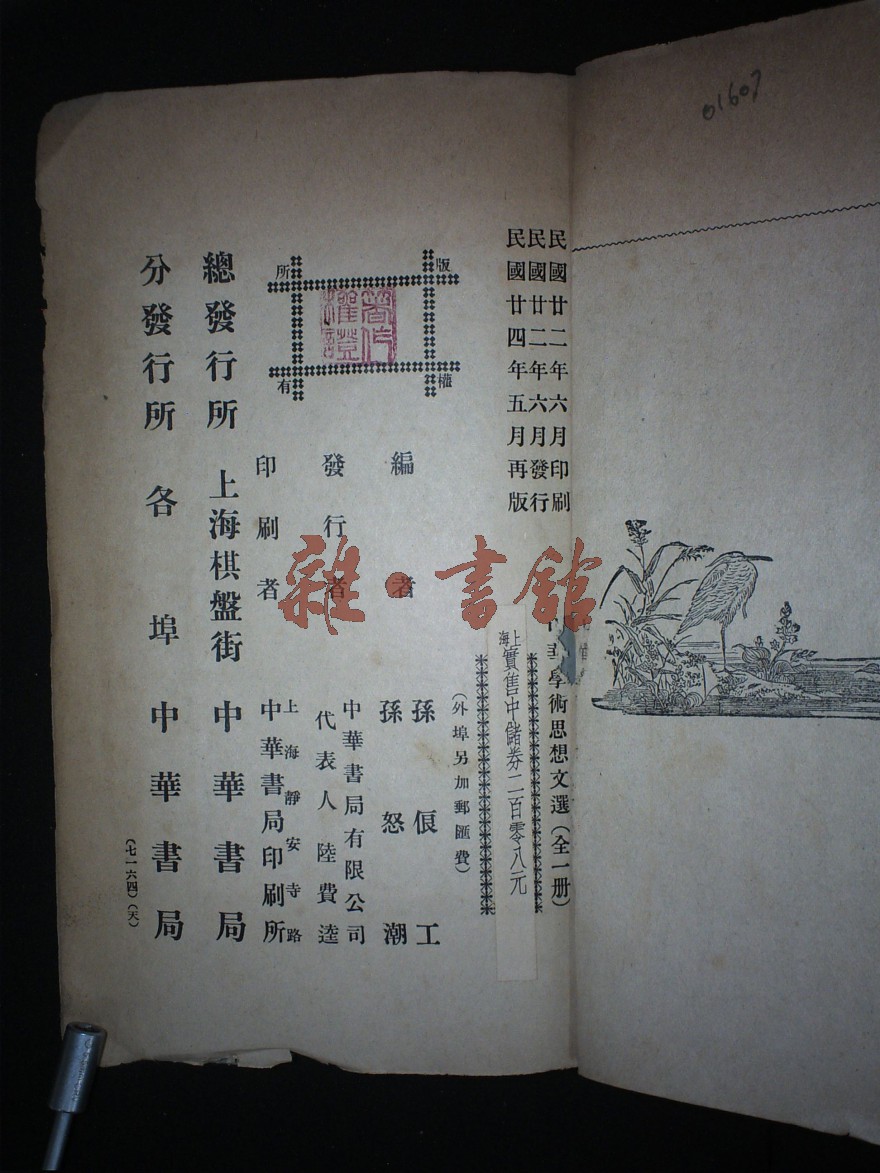 01607
民國廿二年六月印刷
民國廿二年六月發行
民國廿四年五月再版
華學術思想文選(全一册)
上海實售中儲券二百零八元
(外埠另加郵匯費)
版權所有
著作權證
編者
孫俍工
孫怒潮
發行者
中華書局有限公司
代表人陸費逵
印刷者
上海靜安寺路
中華書局印刷所
總發行所 上海棋盤街 中華書局
分發行所 各埠 中華書局
(七一六四)(天)
雜·書館